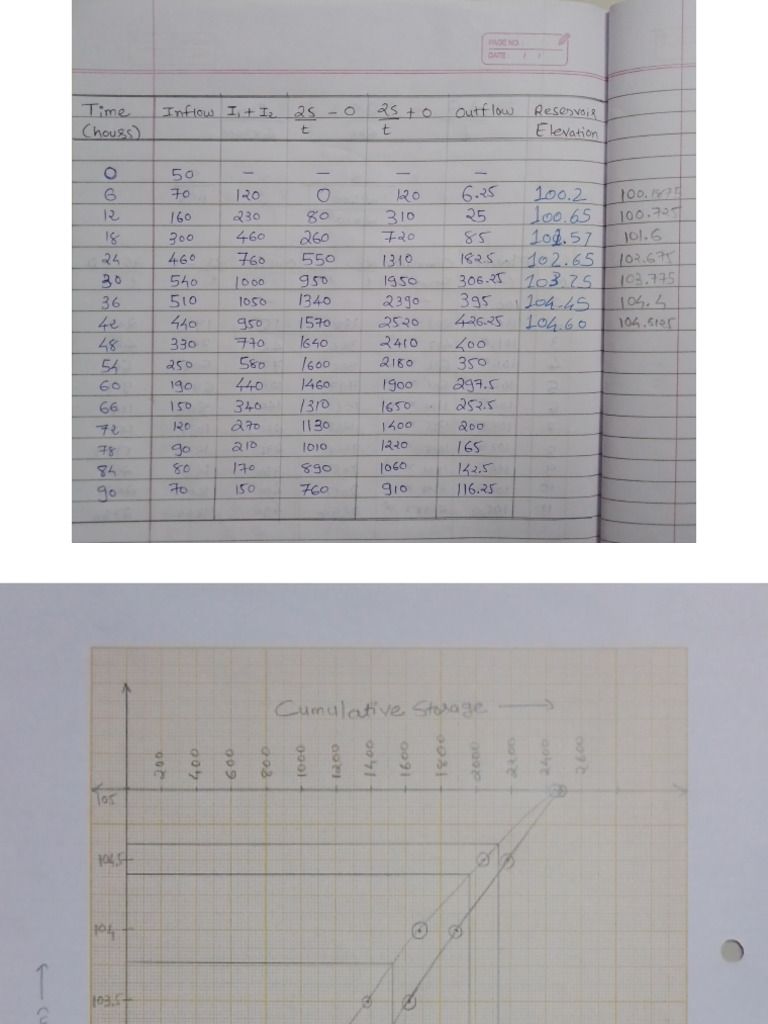 PAGE NO.
DATE: / /
Time Inflow I₁+I₂ 2S/t - O 2S/t + O Outflow Reservoir
(hours) Elevation
0 50 – – – –
6 70 120 0 120 6.25 100.2 100.1875
12 160 230 80 310 25 100.65 100.725
18 300 460 260 720 85 101.57 101.6
24 460 760 550 1310 182.5 102.65 102.675
30 540 1000 950 1950 306.25 103.75 103.775
36 510 1050 1340 2390 395 104.45 104.4
42 440 950 1570 2520 426.25 104.60 104.5125
48 330 770 1640 2410 400
54 250 580 1600 2180 350
60 190 440 1460 1900 297.5
66 150 340 1310 1650 252.5
72 120 270 1130 1400 200
78 90 210 1010 1220 165
84 80 170 890 1060 142.5
90 70 150 760 910 116.25
Cumulative Storage
200 400 600 800 1000 1200 1400 1600 1800 2000 2200 2400 2600
105
104.5
104
103.5